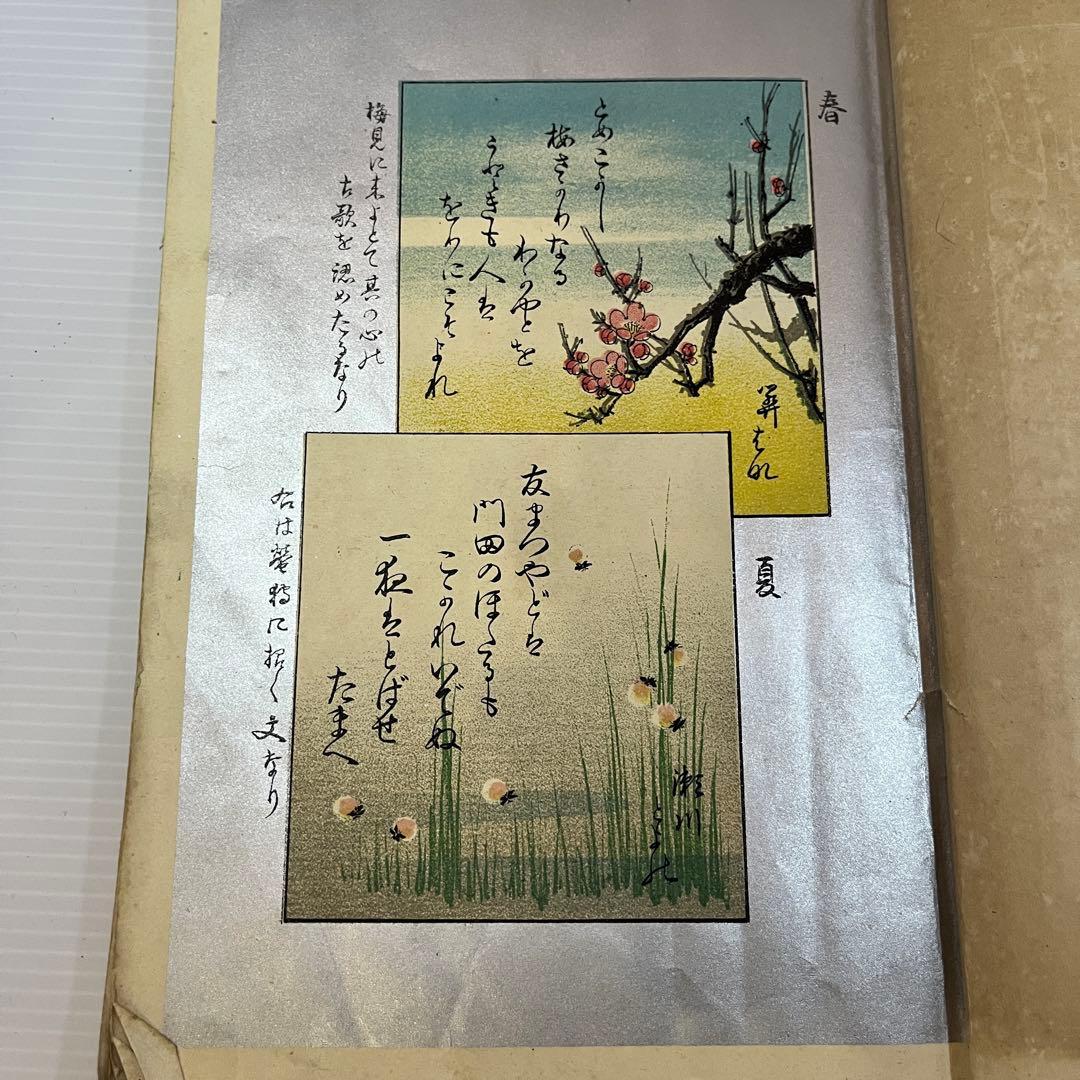 春
とめこかし
梅さかりなる
わかやとを
うときも人は
をりにこそよれ
はな
梅見に来よとて其の心の
古歌を認めたるなり
夏
友まつやどは
門田のほたるも
こかれいでぬ
一夜はとばせ
たまへ
瀬川
とよの
右は螢狩に招く文なり